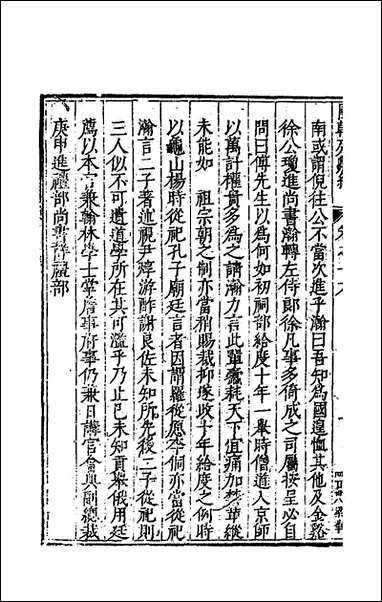 南或謂倪往公不當次進乎瀚曰吾知為國遑恤其他及金谿
徐公瓊進尚書瀚轉左侍郎徐凡事多倚成之司屬按呈必自
問曰傅先生以為何如初祠部給度十年一舉時僧道入京師
以萬計權貴多為之請瀚力言此輩蠹耗天下宜痛加禁革縱
未能如　祖宗朝之制亦當稍賜裁抑遂改十年給度之例時
以龜山楊時從祀孔子廟廷言者因謂羅從彥李侗亦當從祀
瀚言二子著述視尹焞游酢謝良佐未知所先後二子從祀則
三人似不可遺道學所在其可濫乎乃止已未知貢舉俄用廷
薦以本官兼翰林學士掌詹事府事仍兼日講官會典副總裁
庚申進禮部尚書